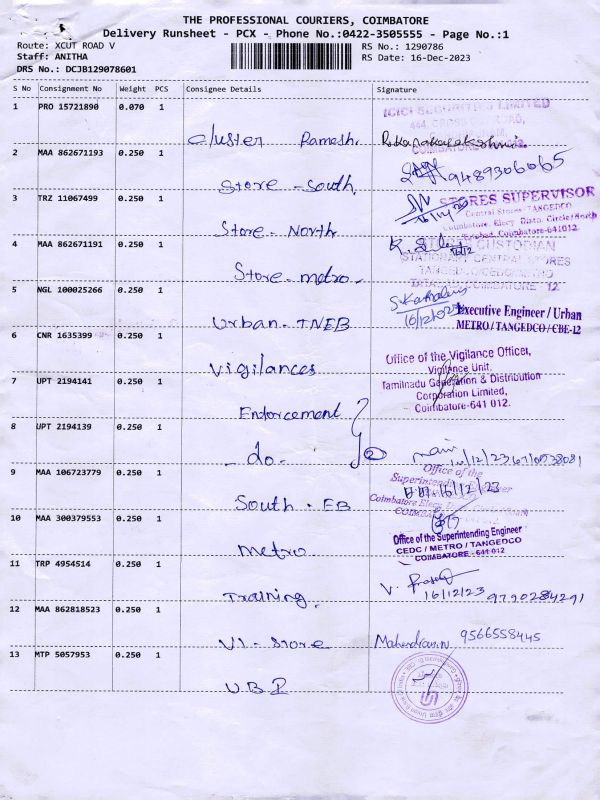 THE PROFESSIONAL COURIERS, COIMBATORE
Delivery Runsheet - PCX - Phone No.:0422-3505555 - Page No.:1
Route: XCUT ROAD V
RS No.: 1290786
Staff: ANITHA
RS Date: 16-Dec-2023
DRS No.: DCJB129078601
S No Consignment No Weight PCS Consignee Details Signature
1 PRO 15721890 0.070 1
ICICI SECURITIES LIMITED
cluster Ramesh.
COIMBATORE
2 MAA 862671193 0.250 1
Store - South. 9489306065
3 TRZ 11067499 0.250 1
STORES SUPERVISOR
Central Stores / TANGEDCO
Coimbatore Elecy. Distn. Circle/North
Coimbatore-641012.
Store - North
4 MAA 862671191 0.250 1
CUSTODIAN
STATIONARY CENTRAL STORES
COIMBATORE 12.
Store - metro -
5 NGL 100025266 0.250 1
16/12/2023
Executive Engineer / Urban
METRO / TANGEDCO / CBE-12
Urban - TNEB
6 CNR 1635399 0.250 1
Office of the Vigilance Officer,
Vigilance Unit,
Vigilances
Tamilnadu Generation & Distribution
Corporation Limited,
Coimbatore-641 012.
7 UPT 2194141 0.250 1
Endorcement
8 UPT 2194139 0.250 1
- do -
mani
9 MAA 106723779 0.250 1
Office of the
Superintending Engineer
16/12/23
South - EB
10 MAA 300379553 0.250 1
Office of the Superintending Engineer
CEDC / METRO / TANGEDCO
COIMBATORE - 641 012
metro
11 TRP 4954514 0.250 1
Training.
16/12/23 9790284291
12 MAA 862818523 0.250 1
VI - Store
Mahendran.N 9566558445
13 MTP 5057953 0.250 1
UBI